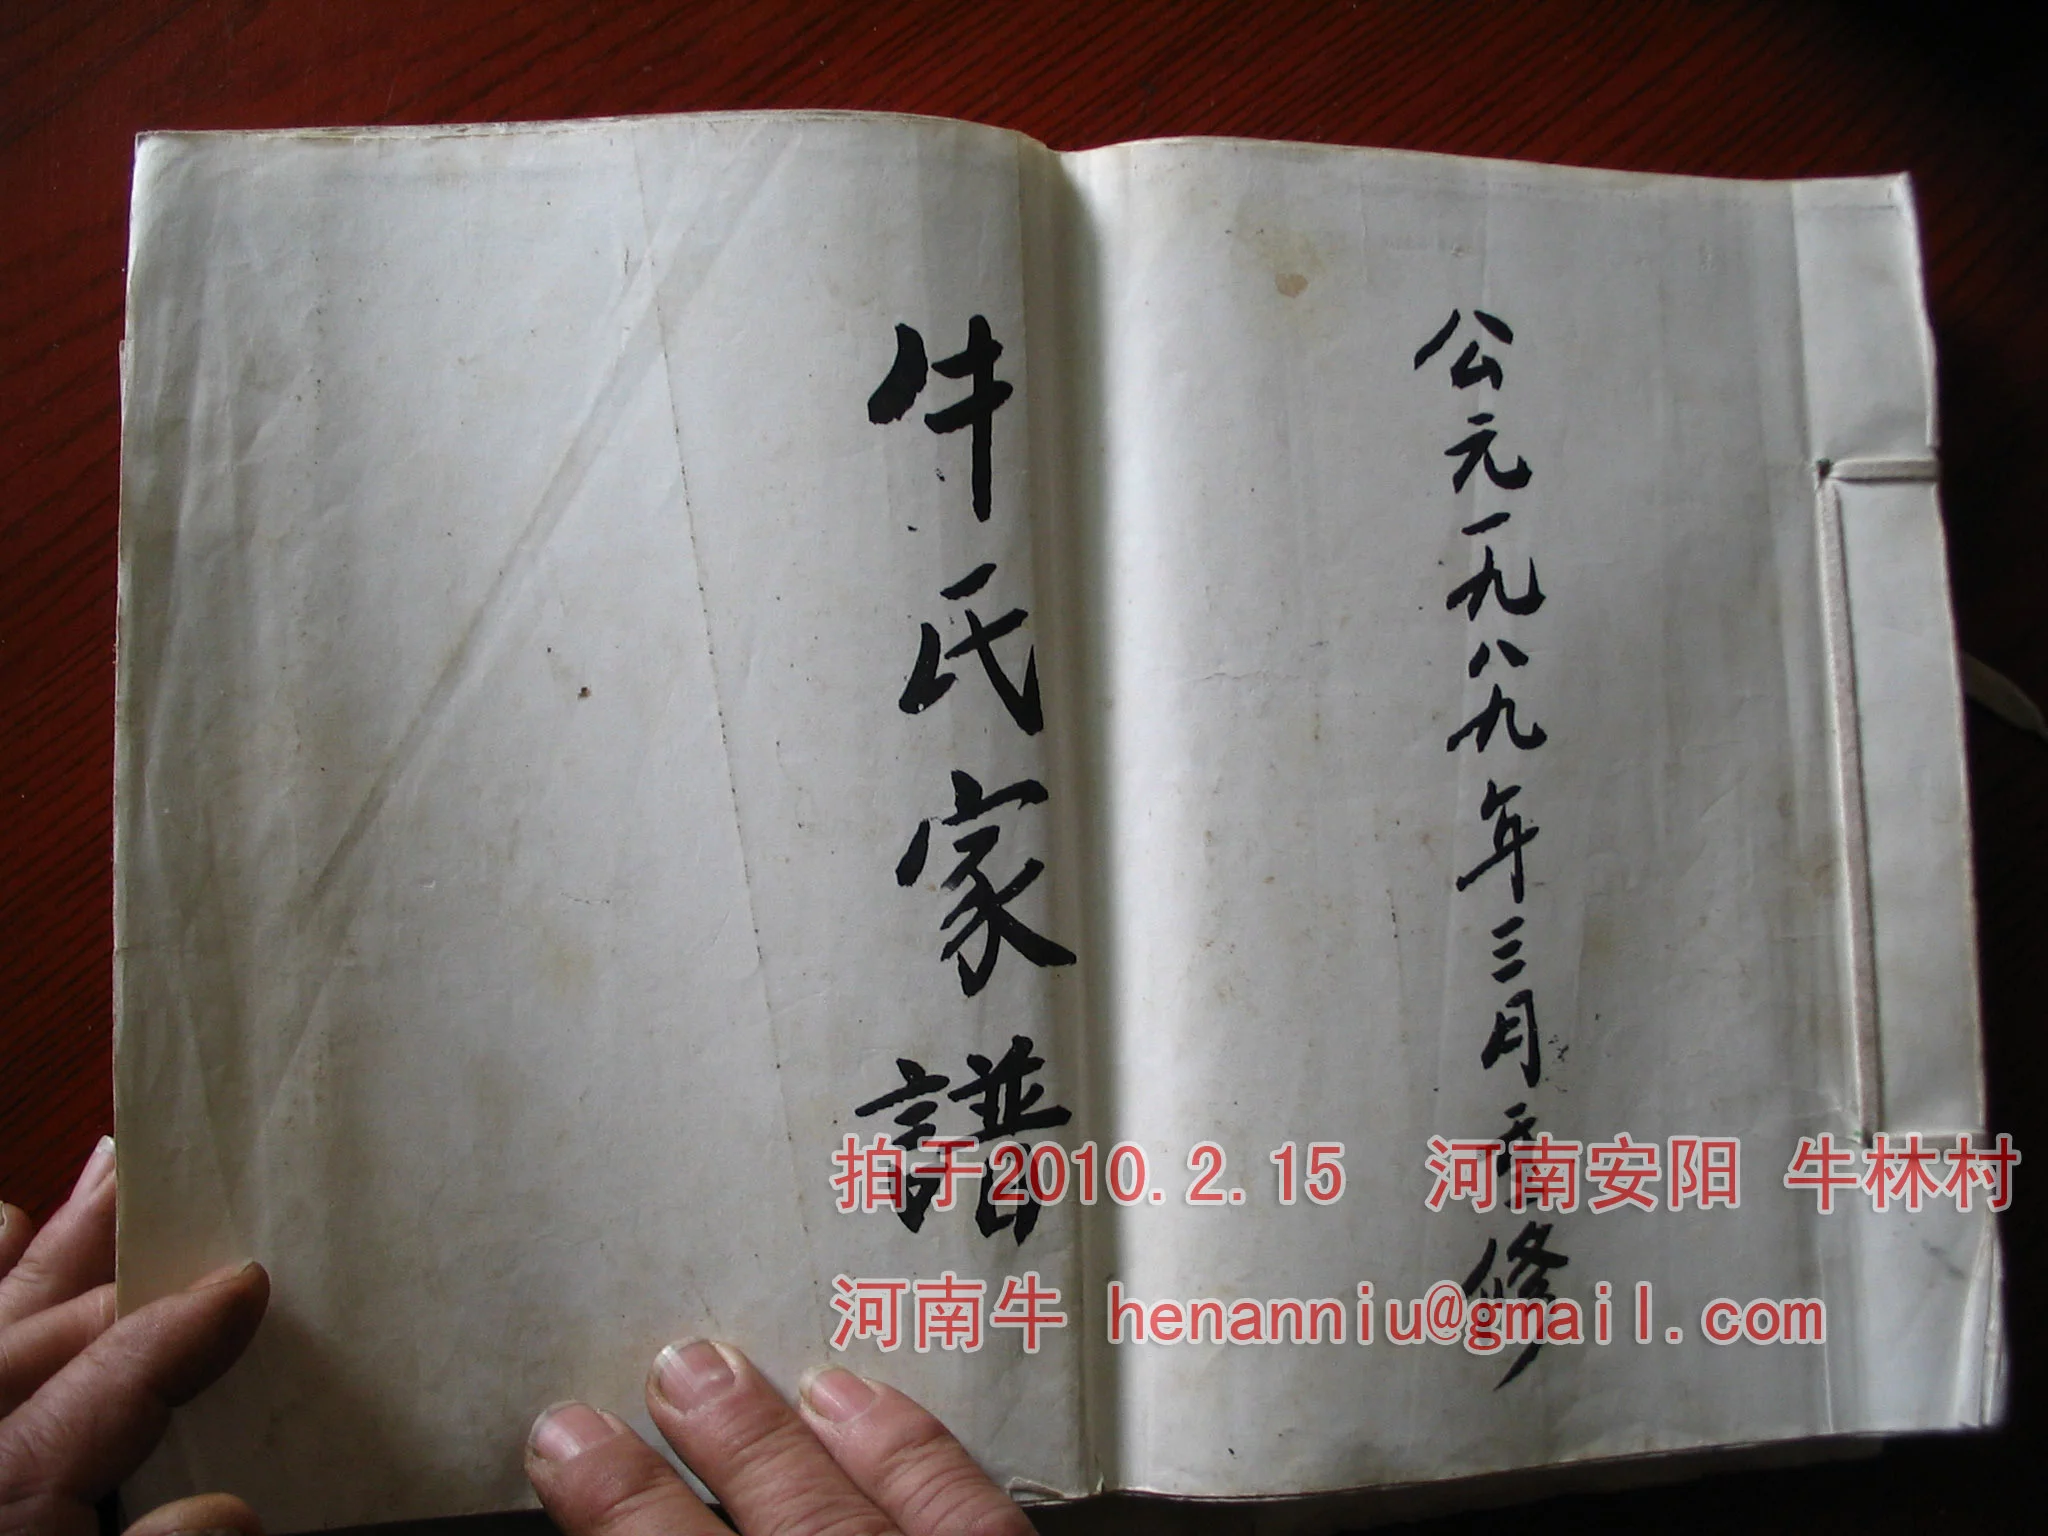 公元一九八九年三月重修
牛氏家譜
拍于2010.2.15 河南安阳 牛林村
河南牛 henanniu@gmail.com